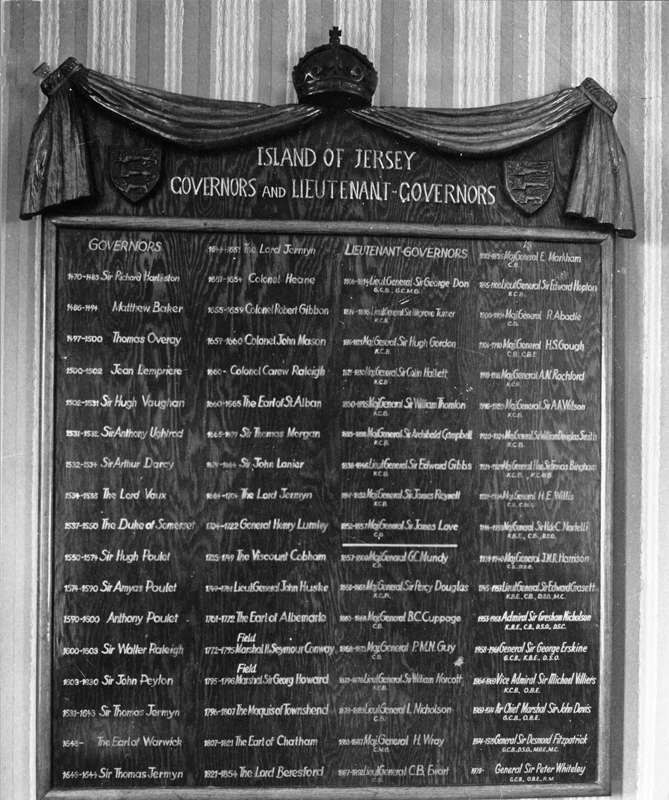 ISLAND OF JERSEY
GOVERNORS AND LIEUTENANT-GOVERNORS
GOVERNORS
1470-1483 Sir Richard Harliston
1486-1494 Matthew Baker
1497-1500 Thomas Overay
1500-1502 Jean Lempriere
1502-1531 Sir Hugh Vaughan
1531-1532 Sir Anthony Ughtred
1532-1534 Sir Arthur Darcy
1534-1536 The Lord Vaux
1537-1550 The Duke of Somerset
1550-1574 Sir Hugh Poulet
1574-1590 Sir Amyas Poulet
1590-1600 Anthony Poulet
1600-1603 Sir Walter Raleigh
1603-1630 Sir John Peyton
1631-1643 Sir Thomas Jermyn
The Earl of Warwick
Sir Thomas Jermyn
The Lord Jermyn
1651-1654 Colonel Heane
1655-1659 Colonel Robert Gibbon
1659-1660 Colonel John Mason
1660- Colonel Carew Raleigh
1660-1665 The Earl of St. Alban
1665-1679 Sir Thomas Morgan
1679-1684 Sir John Lanier
1684-1704 The Lord Jermyn
1704-1722 General Henry Lumley
1723-1749 The Viscount Cobham
1749-1761 Lieut General John Huske
1761-1772 The Earl of Albemarle
Field
1772-1795 Marshal H. Seymour Conway
Field
1795-1796 Marshal Sir George Howard
1796-1807 The Maquis of Townshend
1807-1821 The Earl of Chatham
1821-1854 The Lord Beresford
LIEUTENANT-GOVERNORS
Lieut General Sir George Don
G.C.B., G.C.M.G.
Lieut General Sir Turner
K.C.B.
Maj General Sir Hugh Gordon
K.C.B.
Maj General Sir Colin Halkett
K.C.B.
Maj General Sir William Thornton
K.C.B.
1835-1838 Maj General Sir Archibald Campbell
K.C.B.
1838-1848 Lieut General Sir Edward Gibbs
K.C.B.
1847-1852 Maj General Sir James Reynett
K.C.B.
1852-1857 Maj General Sir James Love
K.C.B.
1857-1860 Maj General G.C. Mundy
C.B.
1860-1863 Maj General Sir Percy Douglas
1863-1868 Maj General B.C. Cuppage
C.B.
1868-1873 Maj General P.M.N. Guy
C.B.
1873-1878 Lieut General Sir William Norcott
K.C.B.
1878-1883 Lieut General L. Nicholson
C.B.
1883-1887 Maj General H. Wray
1887-1892 Lieut General C.B. Ewart
C.B.
1892-1895 Maj General E. Markham
C.B.
1895-1900 Lieut General Sir Edward Hopton
K.C.B.
1900-1904 Maj General R. Abadie
C.B.
1904-1910 Maj General H.S. Gough
C.B., C.B.E.
1910-1916 Maj General A.N. Rochford
1916-1920 Maj General Sir A.A. Wilson
K.C.B.
1920-1924 Maj General Sir William Douglas Smith
1924-1929 Maj General Hon. Sir Francis Bingham
1929-1934 Maj General H.E. Willis
Maj General Sir H. de C. Martelli
K.B.E., C.B., D.S.O.
Maj General J.M.R. Harrison
C.B., D.S.O.
1945-1953 Lieut General Sir Edward Grasett
K.B.E., C.B., D.S.O., M.C.
1953-1958 Admiral Sir Gresham Nicholson
K.B.E., C.B., D.S.O., D.S.C.
General Sir George Erskine
G.C.B., K.B.E., D.S.O.
1964-1969 Vice Admiral Sir Michael Villiers
K.C.B., O.B.E.
1969-1974 Air Chief Marshal Sir John Davis
G.C.B., O.B.E.
1974-1979 General Sir Desmond Fitzpatrick
G.C.B., D.S.O., M.B.E., M.C.
1979- General Sir Peter Whiteley
G.C.B., O.B.E., R.M.